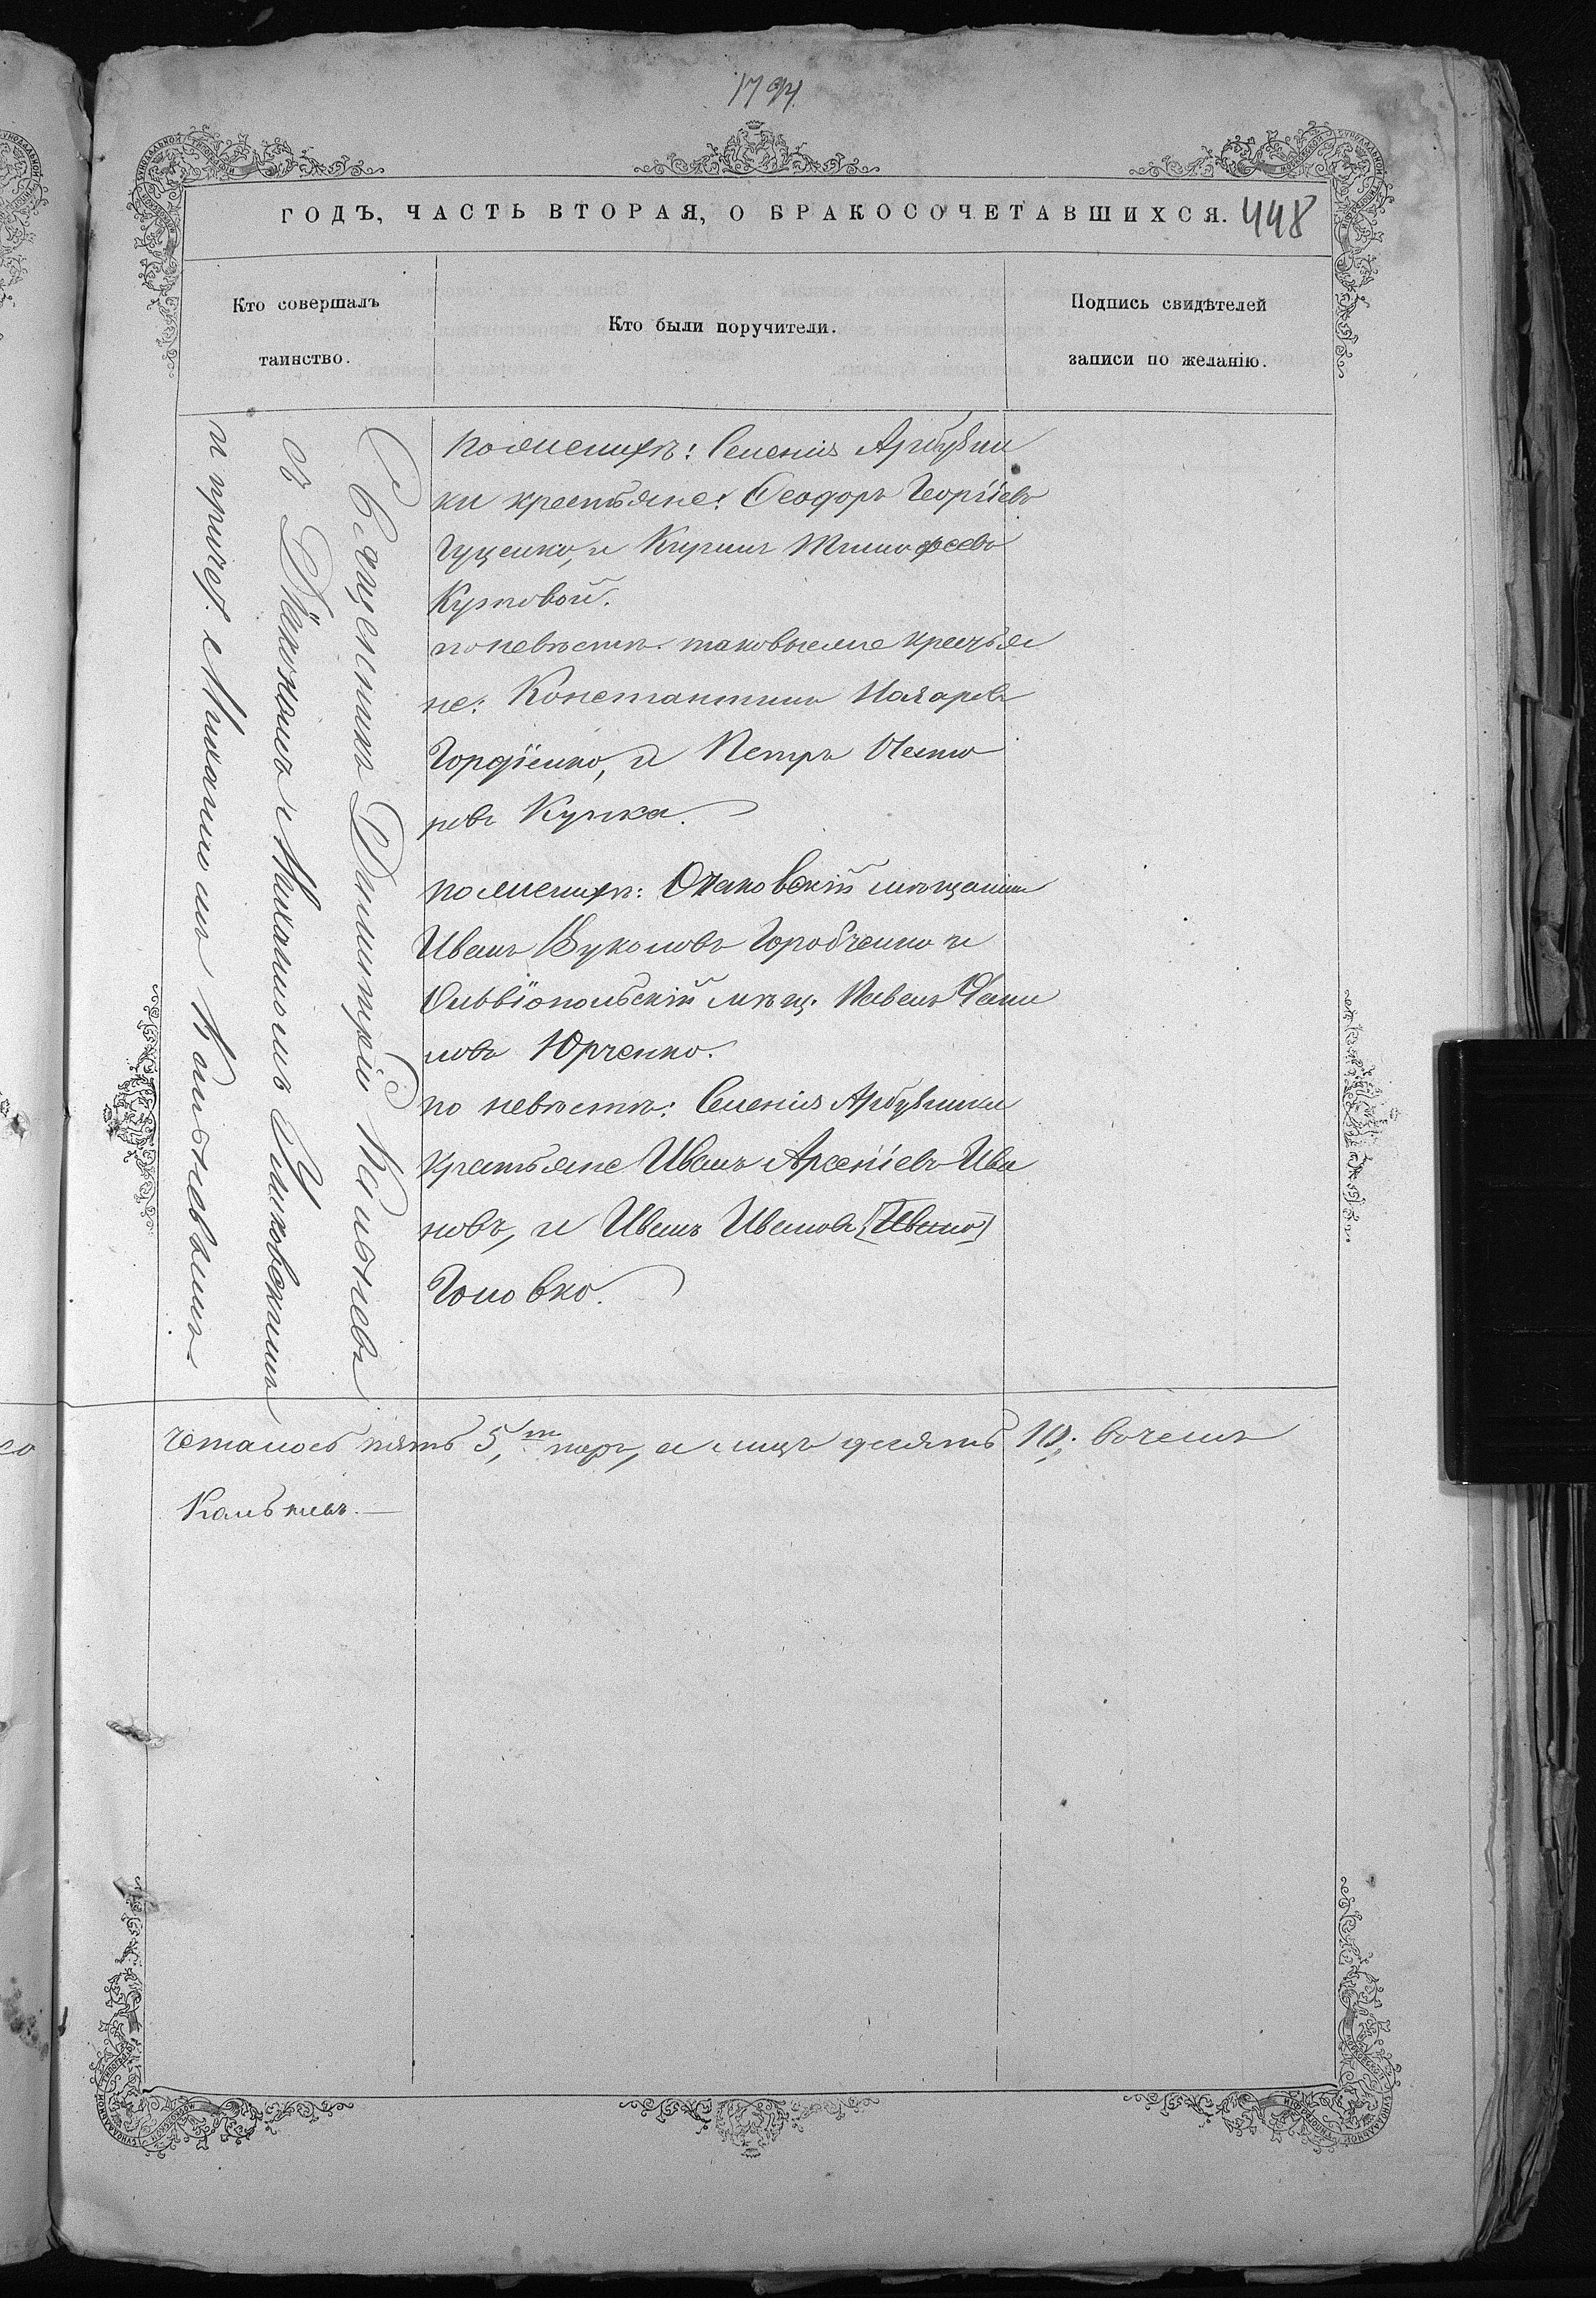 1794
ГОДЪ, ЧАСТЬ ВТОРАЯ, О БРАКОСОЧЕТАВШИХСЯ. 448
Кто совершалъ
таинство.
Кто были поручители.
Подпись свидѣтелей
записи по желанію.
Священникъ Димитрій Кальневъ
съ Діакономъ Михаиломъ
и причет. Михаиломъ Кальневымъ
по женихѣ: Селенія Арбузин
ки крестьяне: Ѳеодоръ Георгіевъ
Гуценко, и Кирилъ Тимофеевъ
Курковой.
по невѣстѣ. таковыеже крестья
не: Константинъ Назаревъ
Гордіенко, и Петръ Несто
ровъ Купка.
по женихѣ: Очаковскій мѣщанинъ
Иванъ Вуколовъ Горобченко и
Ольвіопольскій мѣщ. Павелъ Дани
ловъ Юрченко.
по невѣстѣ: Селенія Арбузинки
крестьяне Иванъ Арсеніевъ Ива
новъ, и Иванъ Ивановъ [Ивано]
Головко.
четалось пять 5, ть паръ, а лицъ десять 10; вочемъ
Кальневъ.